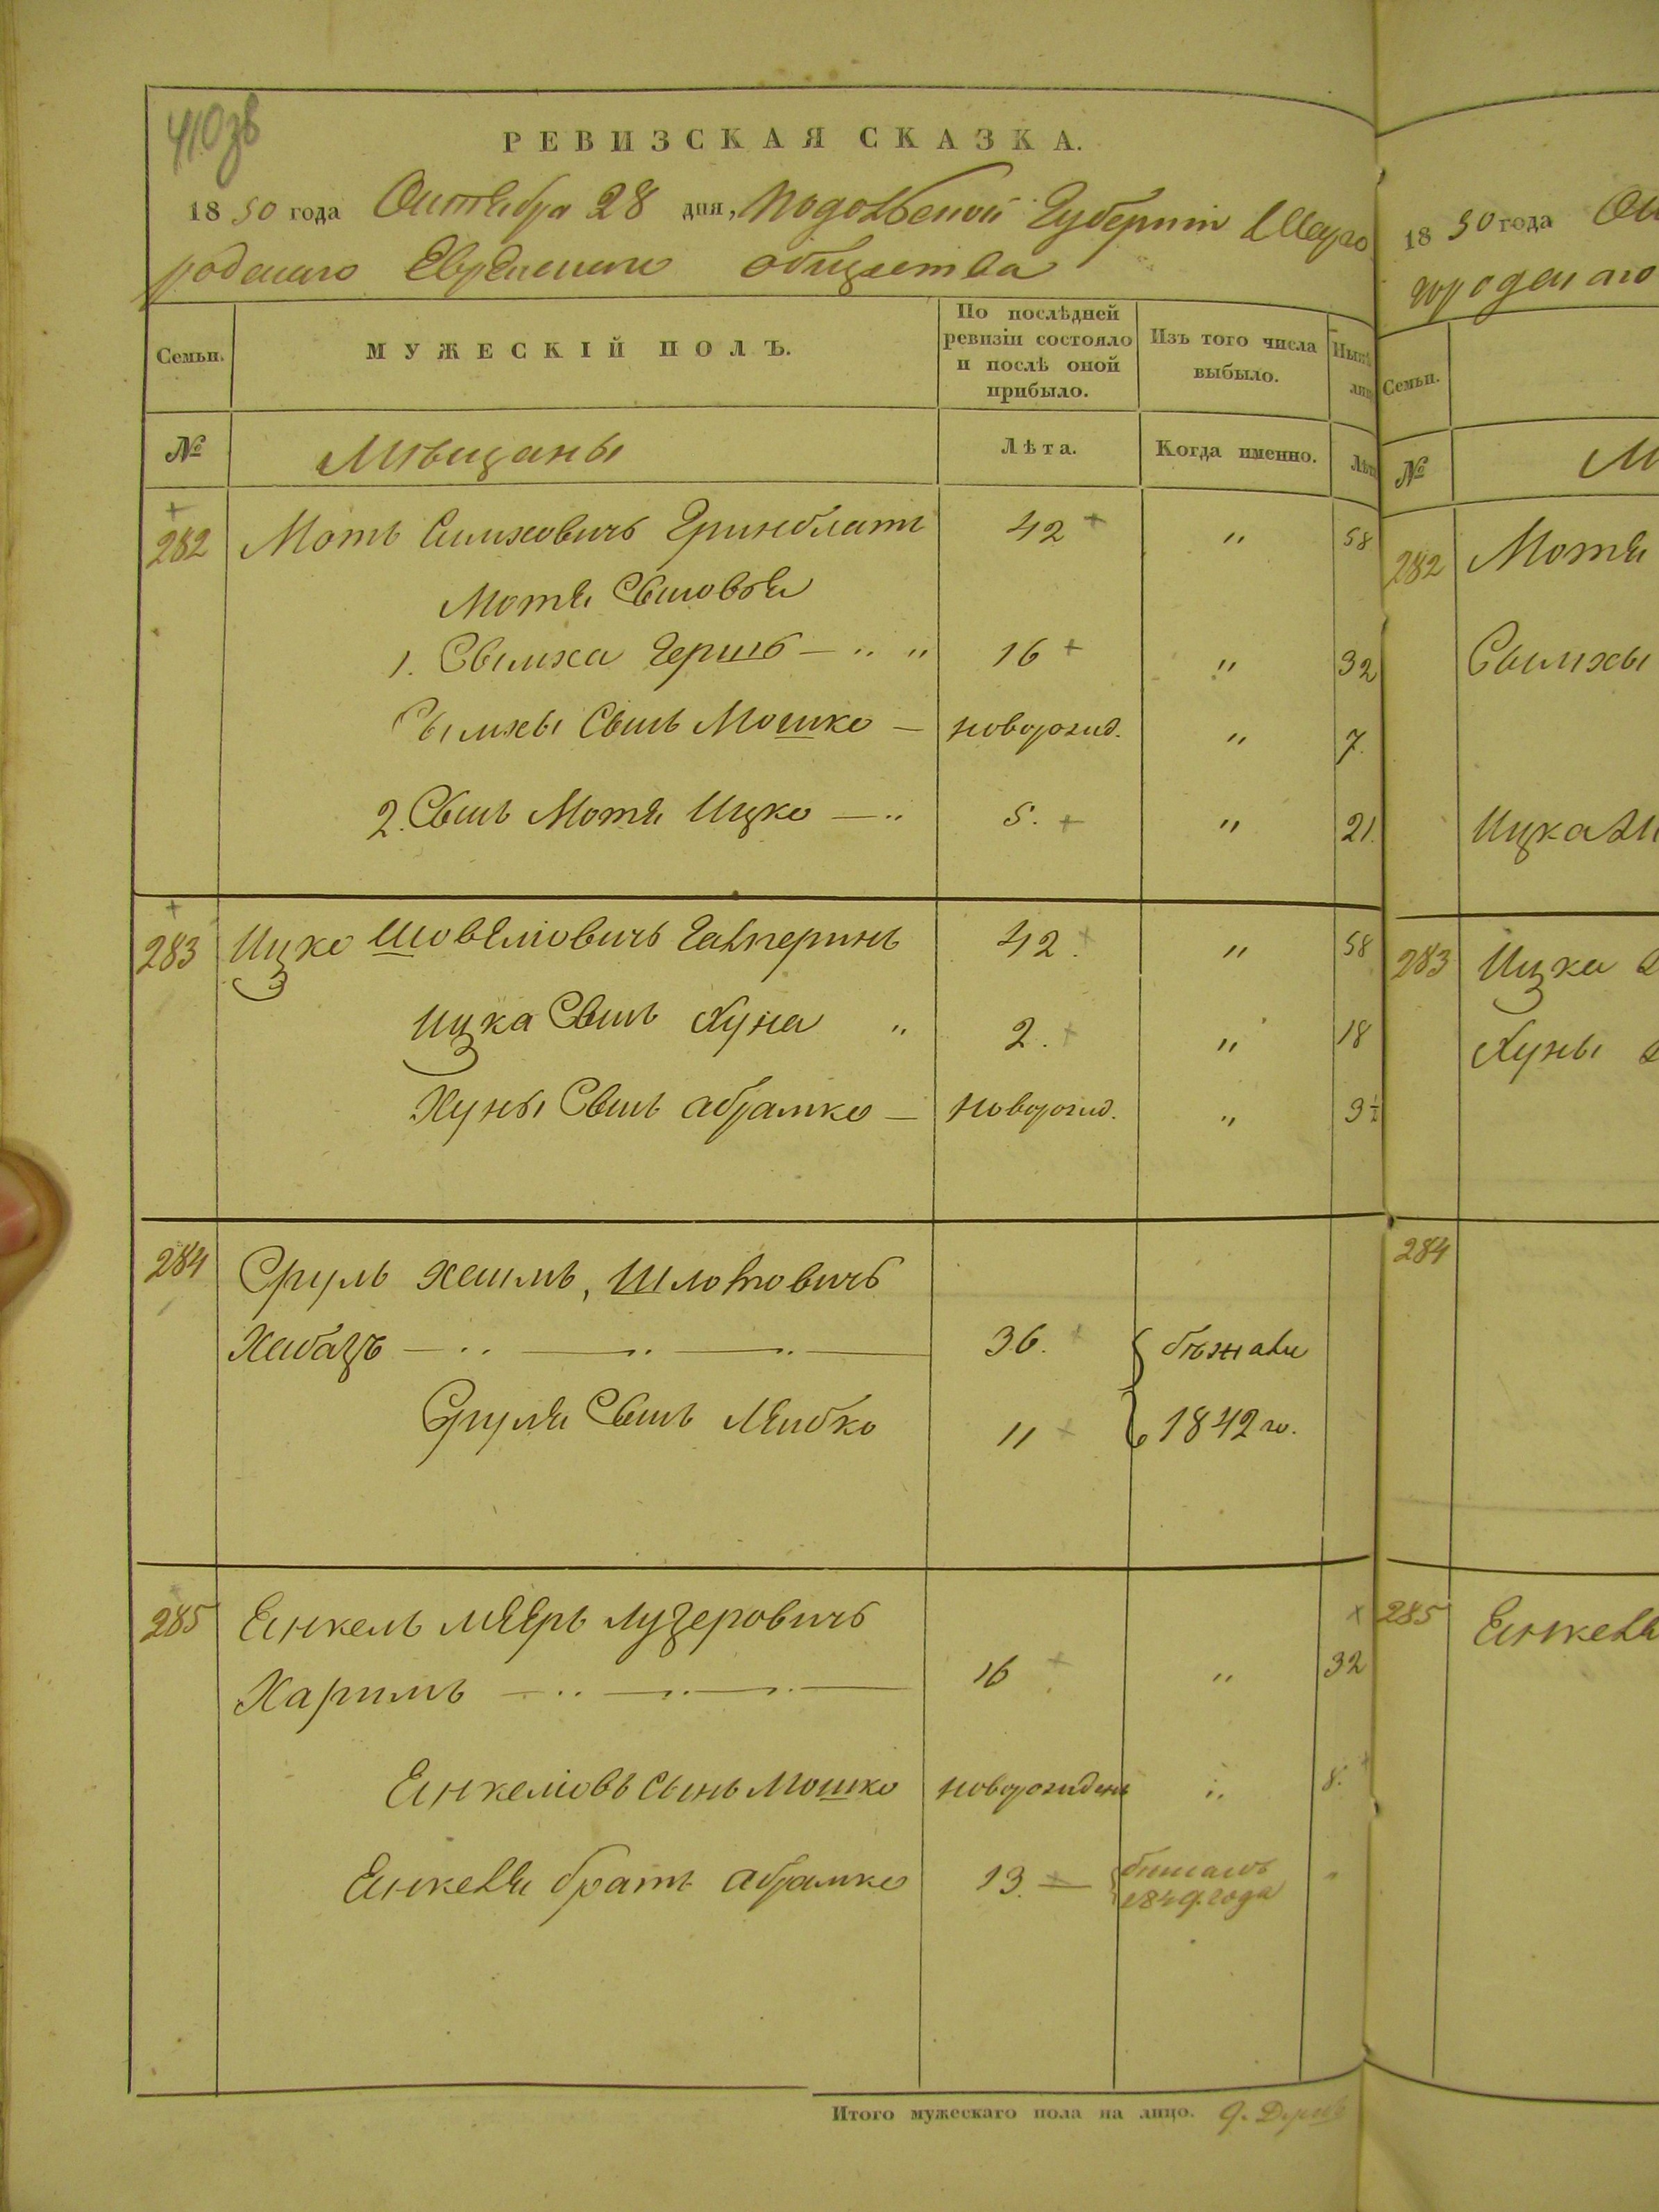 410зв
РЕВИЗСКАЯ СКАЗКА.
1850 года Октября 28 дня, Подольской Губерніи Шарго
родскаго Еврейскаго общества
Семьи.
МУЖЕСКІЙ ПОЛЪ.
По послѣдней ревизіи состояло и послѣ оной прибыло.
Изъ того числа выбыло.
№ Мѣщаны Лѣта. Когда именно.
282 Моть Симховичъ Гринблатъ 42 " 58
Мотя Сыновья
1. Сымха Гершъ — " " 16 " 32
Сымхы Сынъ Мошко — новорожд. " 7.
2. Сынъ Мотя Ицко — " 5. " 21.
283 Ицко Шовлмовичъ Галперинъ 42. " 58
Ицка Сынъ Хуна " 2. " 18
Хуны Сынъ Абрамко — новорожд. " 3½
284 Сруль Хаимъ, Шломовичъ
Хабацъ 36. бѣжали
Сруля Сынъ Лейбко 11 1842 го.
285 Еинкель Мееръ Лузеровичъ
Харимъ 16 " 32
Еинкеловъ сынъ Мошко новорожденъ " 8.
Еинкеля братъ Абрамко 13. — бѣжалъ
1849. года
Итого мужескаго пола на лицо. 9. Душъ
1850 года
городскаго
Семьи.
№
282 Мотя
Сымхы
283 Ицка
Хуны
284
285 Еинкеля